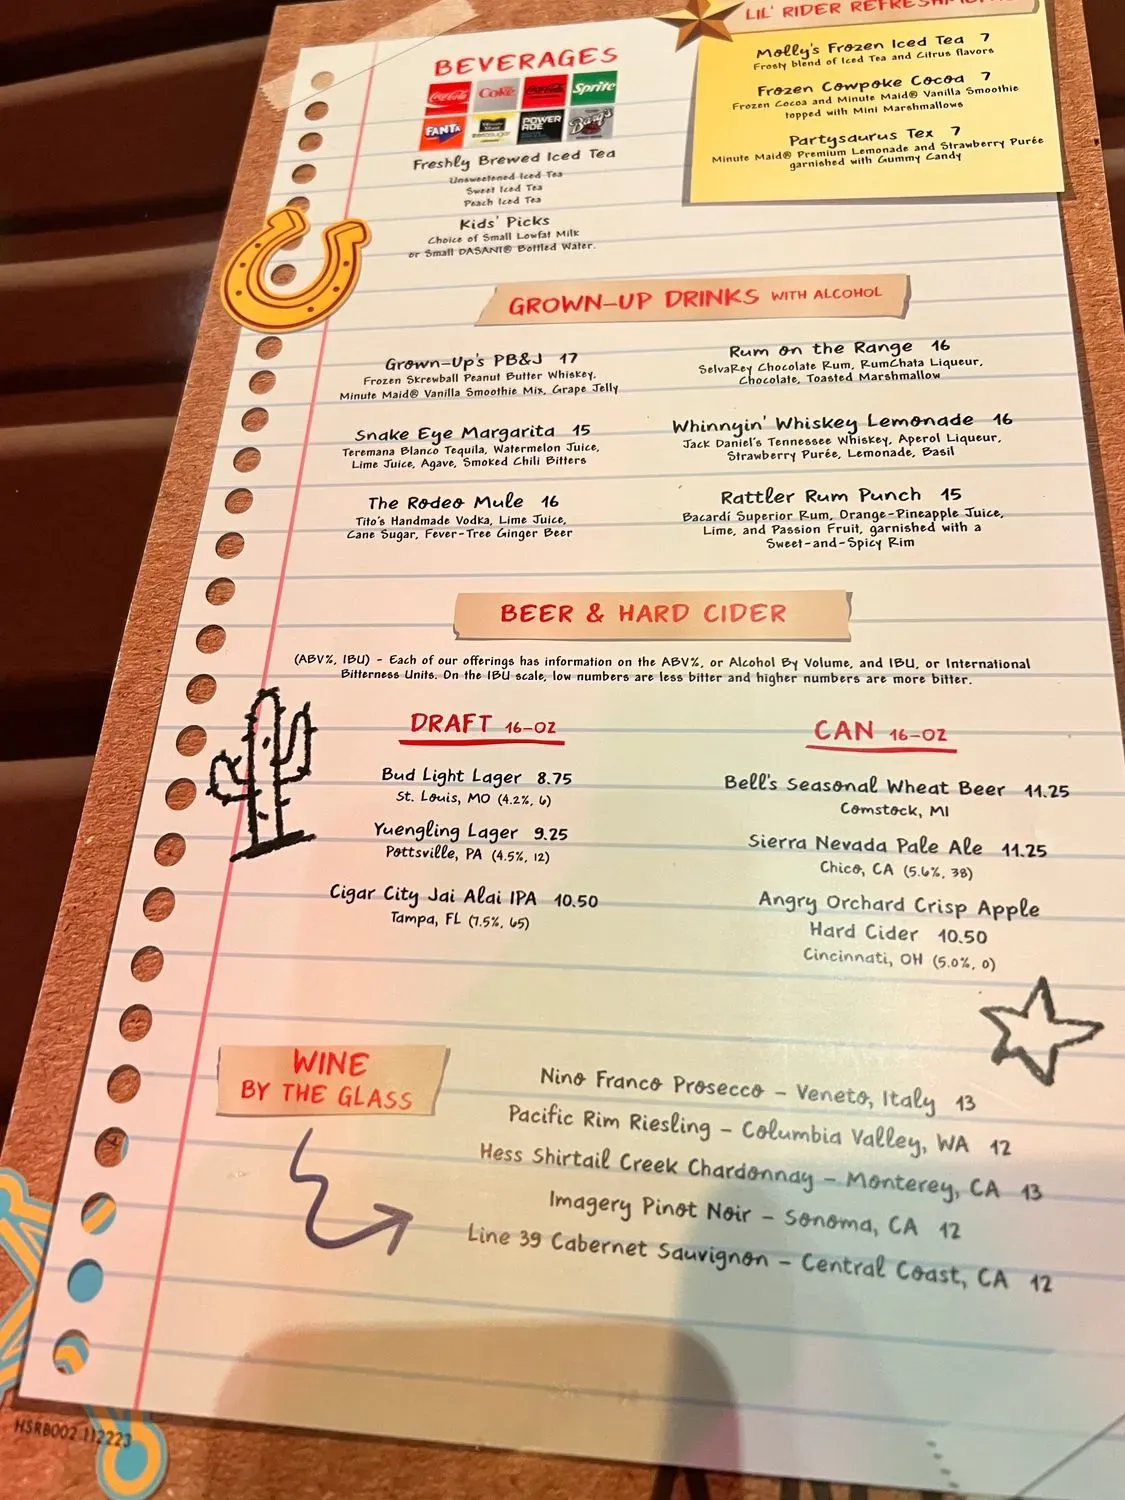 LIL' RIDER REFRESHMENTS
Molly's Frozen Iced Tea 7
Frosty blend of Iced Tea and Citrus flavors
Frozen Cowpoke Cocoa 7
Frozen Cocoa and Minute Maid® Vanilla Smoothie
topped with Mini Marshmallows
Partysaurus Tex 7
Minute Maid® Premium Lemonade and Strawberry Purée
garnished with Gummy Candy
BEVERAGES
Coca-Cola Coke Coca-Cola Sprite
FANTA Minute Maid POWERADE Barq's
Freshly Brewed Iced Tea
Unsweetened Iced Tea
Sweet Iced Tea
Peach Iced Tea
Kids' Picks
Choice of Small Lowfat Milk
or Small DASANI® Bottled Water.
GROWN-UP DRINKS WITH ALCOHOL
Grown-Up's PB&J 17
Frozen Skrewball Peanut Butter Whiskey,
Minute Maid® Vanilla Smoothie Mix, Grape Jelly
Snake Eye Margarita 15
Teremana Blanco Tequila, Watermelon Juice,
Lime Juice, Agave, Smoked Chili Bitters
The Rodeo Mule 16
Tito's Handmade Vodka, Lime Juice,
Cane Sugar, Fever-Tree Ginger Beer
Rum on the Range 16
SelvaRey Chocolate Rum, RumChata Liqueur,
Chocolate, Toasted Marshmallow
Whinnyin' Whiskey Lemonade 16
Jack Daniel's Tennessee Whiskey, Aperol Liqueur,
Strawberry Purée, Lemonade, Basil
Rattler Rum Punch 15
Bacardí Superior Rum, Orange-Pineapple Juice,
Lime, and Passion Fruit, garnished with a
Sweet-and-Spicy Rim
BEER & HARD CIDER
(ABV%, IBU) - Each of our offerings has information on the ABV%, or Alcohol By Volume, and IBU, or International
Bitterness Units. On the IBU scale, low numbers are less bitter and higher numbers are more bitter.
DRAFT 16-OZ
Bud Light Lager 8.75
St. Louis, MO (4.2%, 6)
Yuengling Lager 9.25
Pottsville, PA (4.5%, 12)
Cigar City Jai Alai IPA 10.50
Tampa, FL (7.5%, 65)
CAN 16-OZ
Bell's Seasonal Wheat Beer 11.25
Comstock, MI
Sierra Nevada Pale Ale 11.25
Chico, CA (5.6%, 38)
Angry Orchard Crisp Apple
Hard Cider 10.50
Cincinnati, OH (5.0%, 0)
WINE
BY THE GLASS
Nino Franco Prosecco - Veneto, Italy 13
Pacific Rim Riesling - Columbia Valley, WA 12
Hess Shirtail Creek Chardonnay - Monterey, CA 13
Imagery Pinot Noir - Sonoma, CA 12
Line 39 Cabernet Sauvignon - Central Coast, CA 12
HSRB002 112223